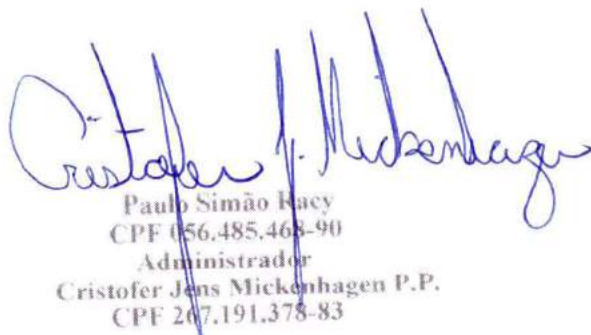 Cristofer J. Mickenhagen
Paulo Simão Racy
CPF 056.485.468-90
Administrador
Cristofer Jens Mickenhagen P.P.
CPF 267.191.378-83